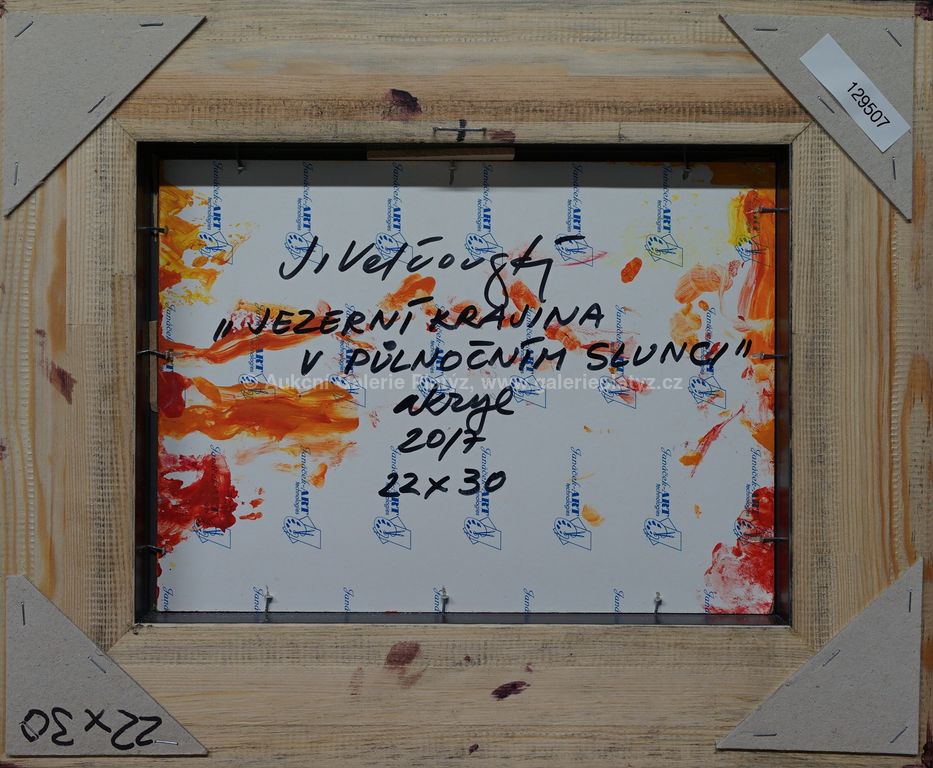 129507
J. Velčovský
„JEZERNÍ KRAJINA
V PŮLNOČNÍM SLUNCI"
akryl
2017
22 x 30
Aukční Galerie Platýz, www.galerieplatyz.cz
Janáček-ART
technologies
22 x 30